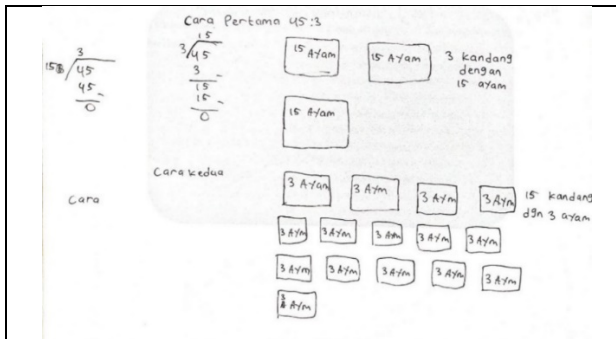 Cara Pertama 45:3
3
15 / 45
45 -
0
15
3 / 45
3 -
15
15 -
0
15 Ayam
15 Ayam
3 kandang
dengan
15 ayam
15 Ayam
Cara kedua
Cara
3 Ayam
3 Aym
3 Aym
3 Aym
15 kandang
dgn 3 ayam
3 Aym
3 Aym
3 Aym
3 Aym
3 Aym
3 Aym
3 Aym
3 Aym
3 Aym
3 Aym
3 Aym